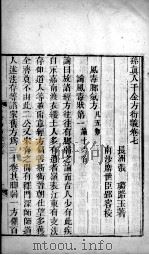 孫真人千金方衍義卷七
長洲張 璐路玉著
南沙席世臣郢客校
風毒腳氣方
論風毒狀第一
論曰考諸經方往往有腳弱之論而古人少有此疾
自永嘉南渡衣纓士人多有遭者嶺表江東有支法
存仰道人等並留意經方偏善斯術晉朝仕望多獲
全濟莫不由此二公又宋齊之間有釋門深師師道
人述法存等諸家舊方為三十卷其腳弱一方近百